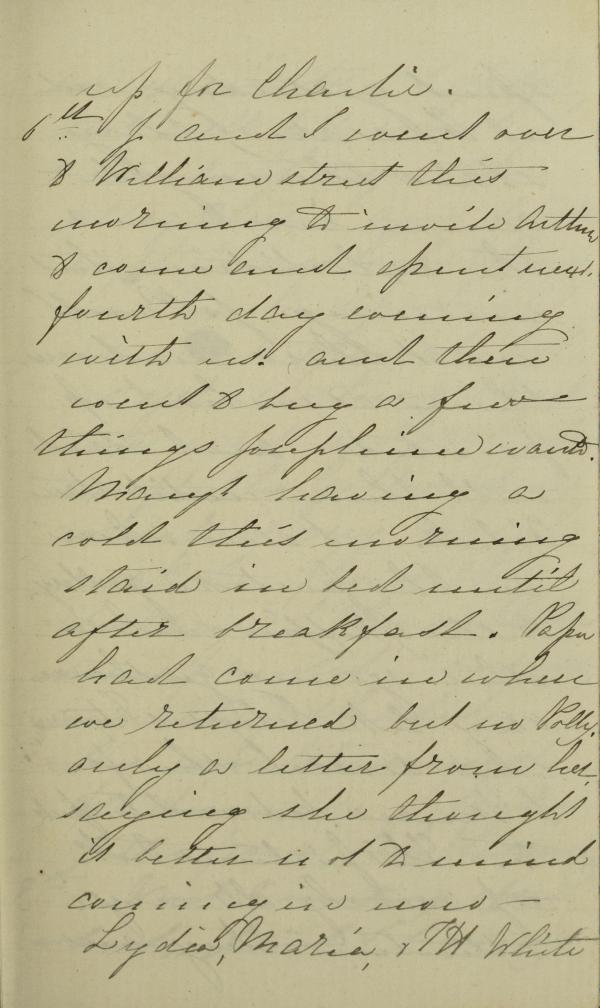 up for Charlie.
6th J and I went over
to William street this
morning to invite Arthur
to come and spent next
fourth day evening
with us. and then
went to buy a few
things Josephine wants.
having a
cold this morning
staid in bed until
after breakfast. Papa
had come in when
we returned but no Polly.
only a letter from her.
saying she thought
it better not to mind
coming in now —
Lydia, Maria, & TH White